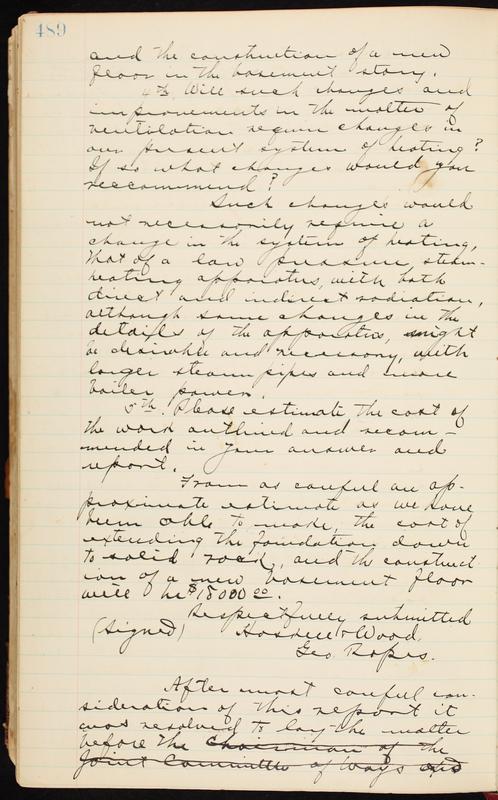 489
and the construction of a new
floor in the basement story.
4th Will such changes and
improvements in the matter of
ventilation require changes in
our present system of heating?
If so what changes would you
reccommend?
Such changes would
not necessarily require a
change in the system of heating,
that of a low pressure steam-
heating apparatus, with both
direct and indirect radiation,
although some changes in the
details of the apparatus, might
be desirable and necessary, with
larger steam pipes and more
boiler power.
5th. Please estimate the cost of
the work outlined and recom-
mended in your answer and
report.
From as careful an ap-
proximate estimate as we have
been able to make, the cost of
extending the foundation down
to solid rock, and the construct
ion of a new basement floor
will be $18000 00.
Respectfully submitted
(Signed) & Wood
Geo. Ropes.
After most careful con-
sideration of this report it
was resolved to lay the matter
before the Chairman of the
Joint Committee of Ways and